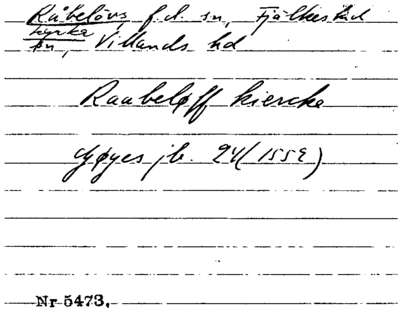 Råbelövs f.d. sn, Fjälkestad
kyrka
sn, Villands hd
Raabeløff kiercke
Gøyes jb. 24 (1552)
Nr 5473.